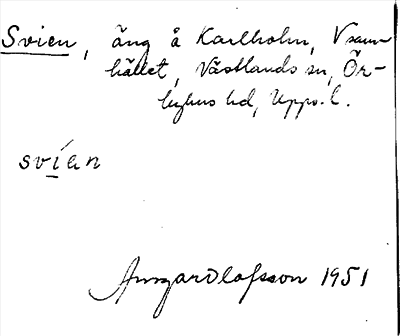 Svien, äng å Karlholm, V sam-
hället, Västlands sn, Ör-
byhus hd, Upps. l.
svíen
Olofsson 1951